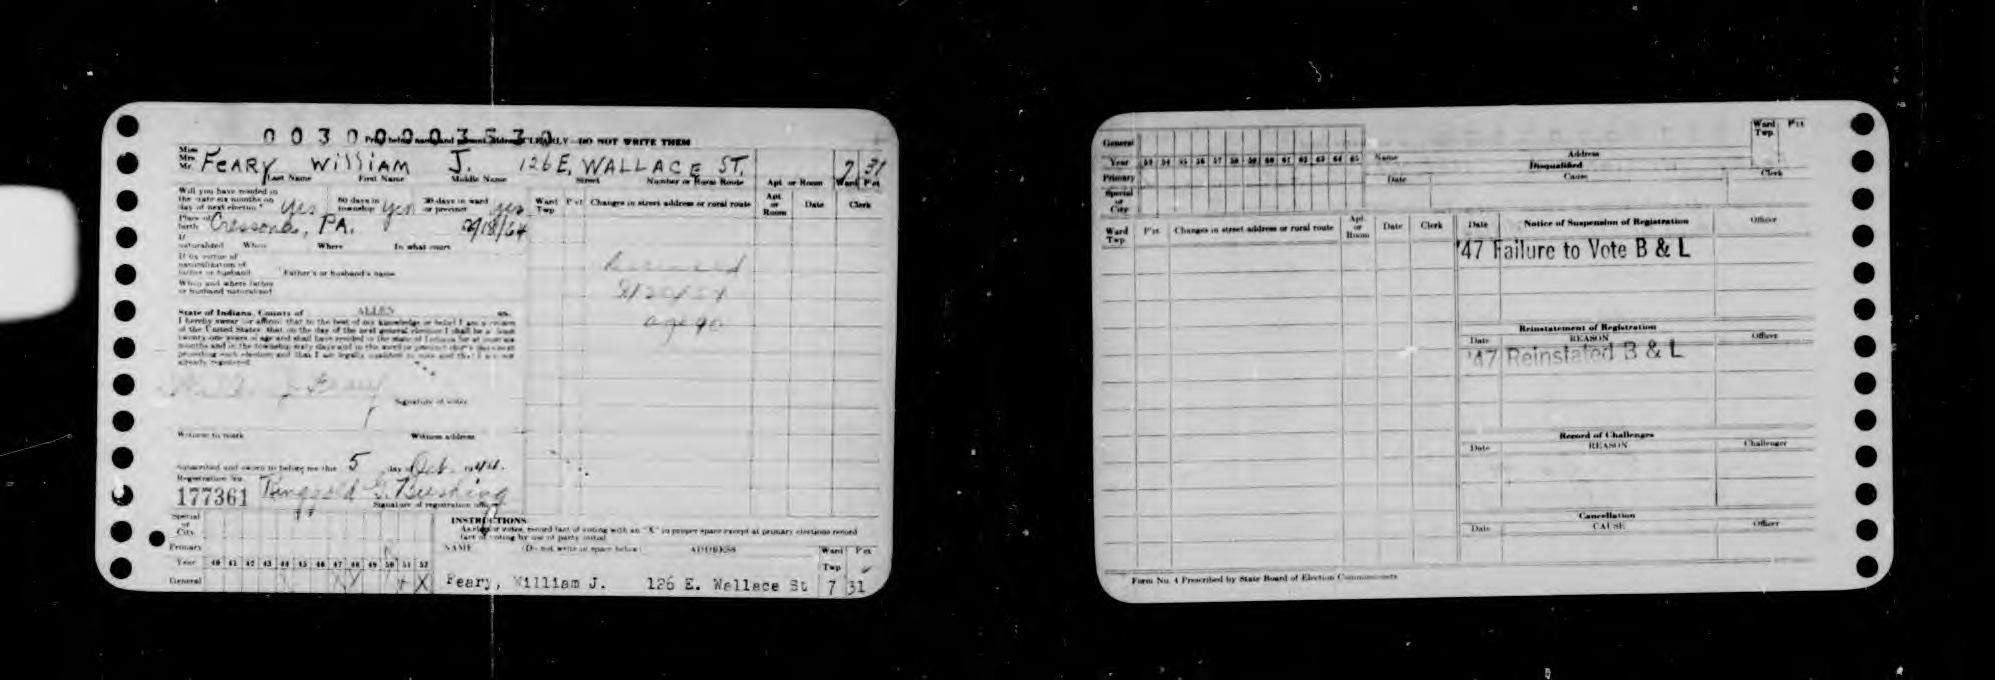 00300003530
Print below name and present address CLEARLY—DO NOT WRITE THEM
Miss
Mrs.
Mr. FEARY WILLIAM J. 126 E. WALLACE ST. 7 31
Last Name First Name Middle Name Street Number or Rural Route Apt. or Room Ward P'ct
Will you have resided in the state six months on day of next election? yes 60 days in township yes 30 days in ward or precinct yes
Ward Twp P'ct Changes in street address or rural route Apt. or Room Date Clerk
Place of birth Cressona, PA. /18/64
If naturalized When Where In what court
If by virtue of naturalization of father or husband Father's or husband's name
When and where father or husband naturalized
Deceased
age 90
State of Indiana, County of ALLEN ss.
I hereby swear (or affirm) that to the best of my knowledge or belief I am a citizen
of the United States, that on the day of the next general election I shall be at least
twenty-one years of age and shall have resided in the state of Indiana for at least six
months and in the township sixty days and in the ward or precinct thirty days next
preceding such election and that I am legally qualified to vote and that I am not
already registered.
William J. Feary
Signature of voter
Witness to mark Witness address
Subscribed and sworn to before me this 5 day of Oct. 1944.
Registration No.
177361
Signature of registration officer
Special or City
Primary
Year 40 41 42 43 44 45 46 47 48 49 50 51 52
General X X X X
INSTRUCTIONS
As elector votes, record fact of voting with an "X" in proper space except at primary elections record
fact of voting by use of party initial
NAME (Do not write in space below) ADDRESS Ward Twp P'ct
Feary, William J. 126 E. Wallace St 7 31
General
Year 53 54 55 56 57 58 59 60 61 62 63 64 65
Primary
Special or City
Name Address Ward Twp. P'ct
Disqualified
Date Cause Clerk
Ward Twp P'ct Changes in street address or rural route Apt. or Room Date Clerk
Date Notice of Suspension of Registration Officer
'47 Failure to Vote B & L
Reinstatement of Registration
Date REASON Officer
'47 Reinstated B & L
Record of Challenges
Date REASON Challenger
Cancellation
Date CAUSE Officer
Form No. 4 Prescribed by State Board of Election Commissioners